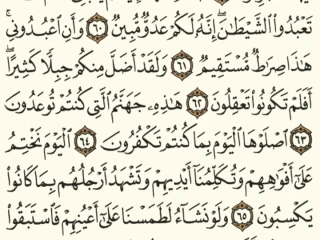 تَعْبُدُوا۟ ٱلشَّيْطَٰنَ ۖ إِنَّهُۥ لَكُمْ عَدُوٌّ مُّبِينٌ ﴿٦٠﴾ وَأَنِ ٱعْبُدُونِى ۚ
هَٰذَا صِرَٰطٌ مُّسْتَقِيمٌ ﴿٦١﴾ وَلَقَدْ أَضَلَّ مِنكُمْ جِبِلًّا كَثِيرًا ۖ
أَفَلَمْ تَكُونُوا۟ تَعْقِلُونَ ﴿٦٢﴾ هَٰذِهِۦ جَهَنَّمُ ٱلَّتِى كُنتُمْ تُوعَدُونَ
﴿٦٣﴾ ٱصْلَوْهَا ٱلْيَوْمَ بِمَا كُنتُمْ تَكْفُرُونَ ﴿٦٤﴾ ٱلْيَوْمَ نَخْتِمُ
عَلَىٰٓ أَفْوَٰهِهِمْ وَتُكَلِّمُنَآ أَيْدِيهِمْ وَتَشْهَدُ أَرْجُلُهُم بِمَا كَانُوا۟
يَكْسِبُونَ ﴿٦٥﴾ وَلَوْ نَشَآءُ لَطَمَسْنَا عَلَىٰٓ أَعْيُنِهِمْ فَٱسْتَبَقُوا۟